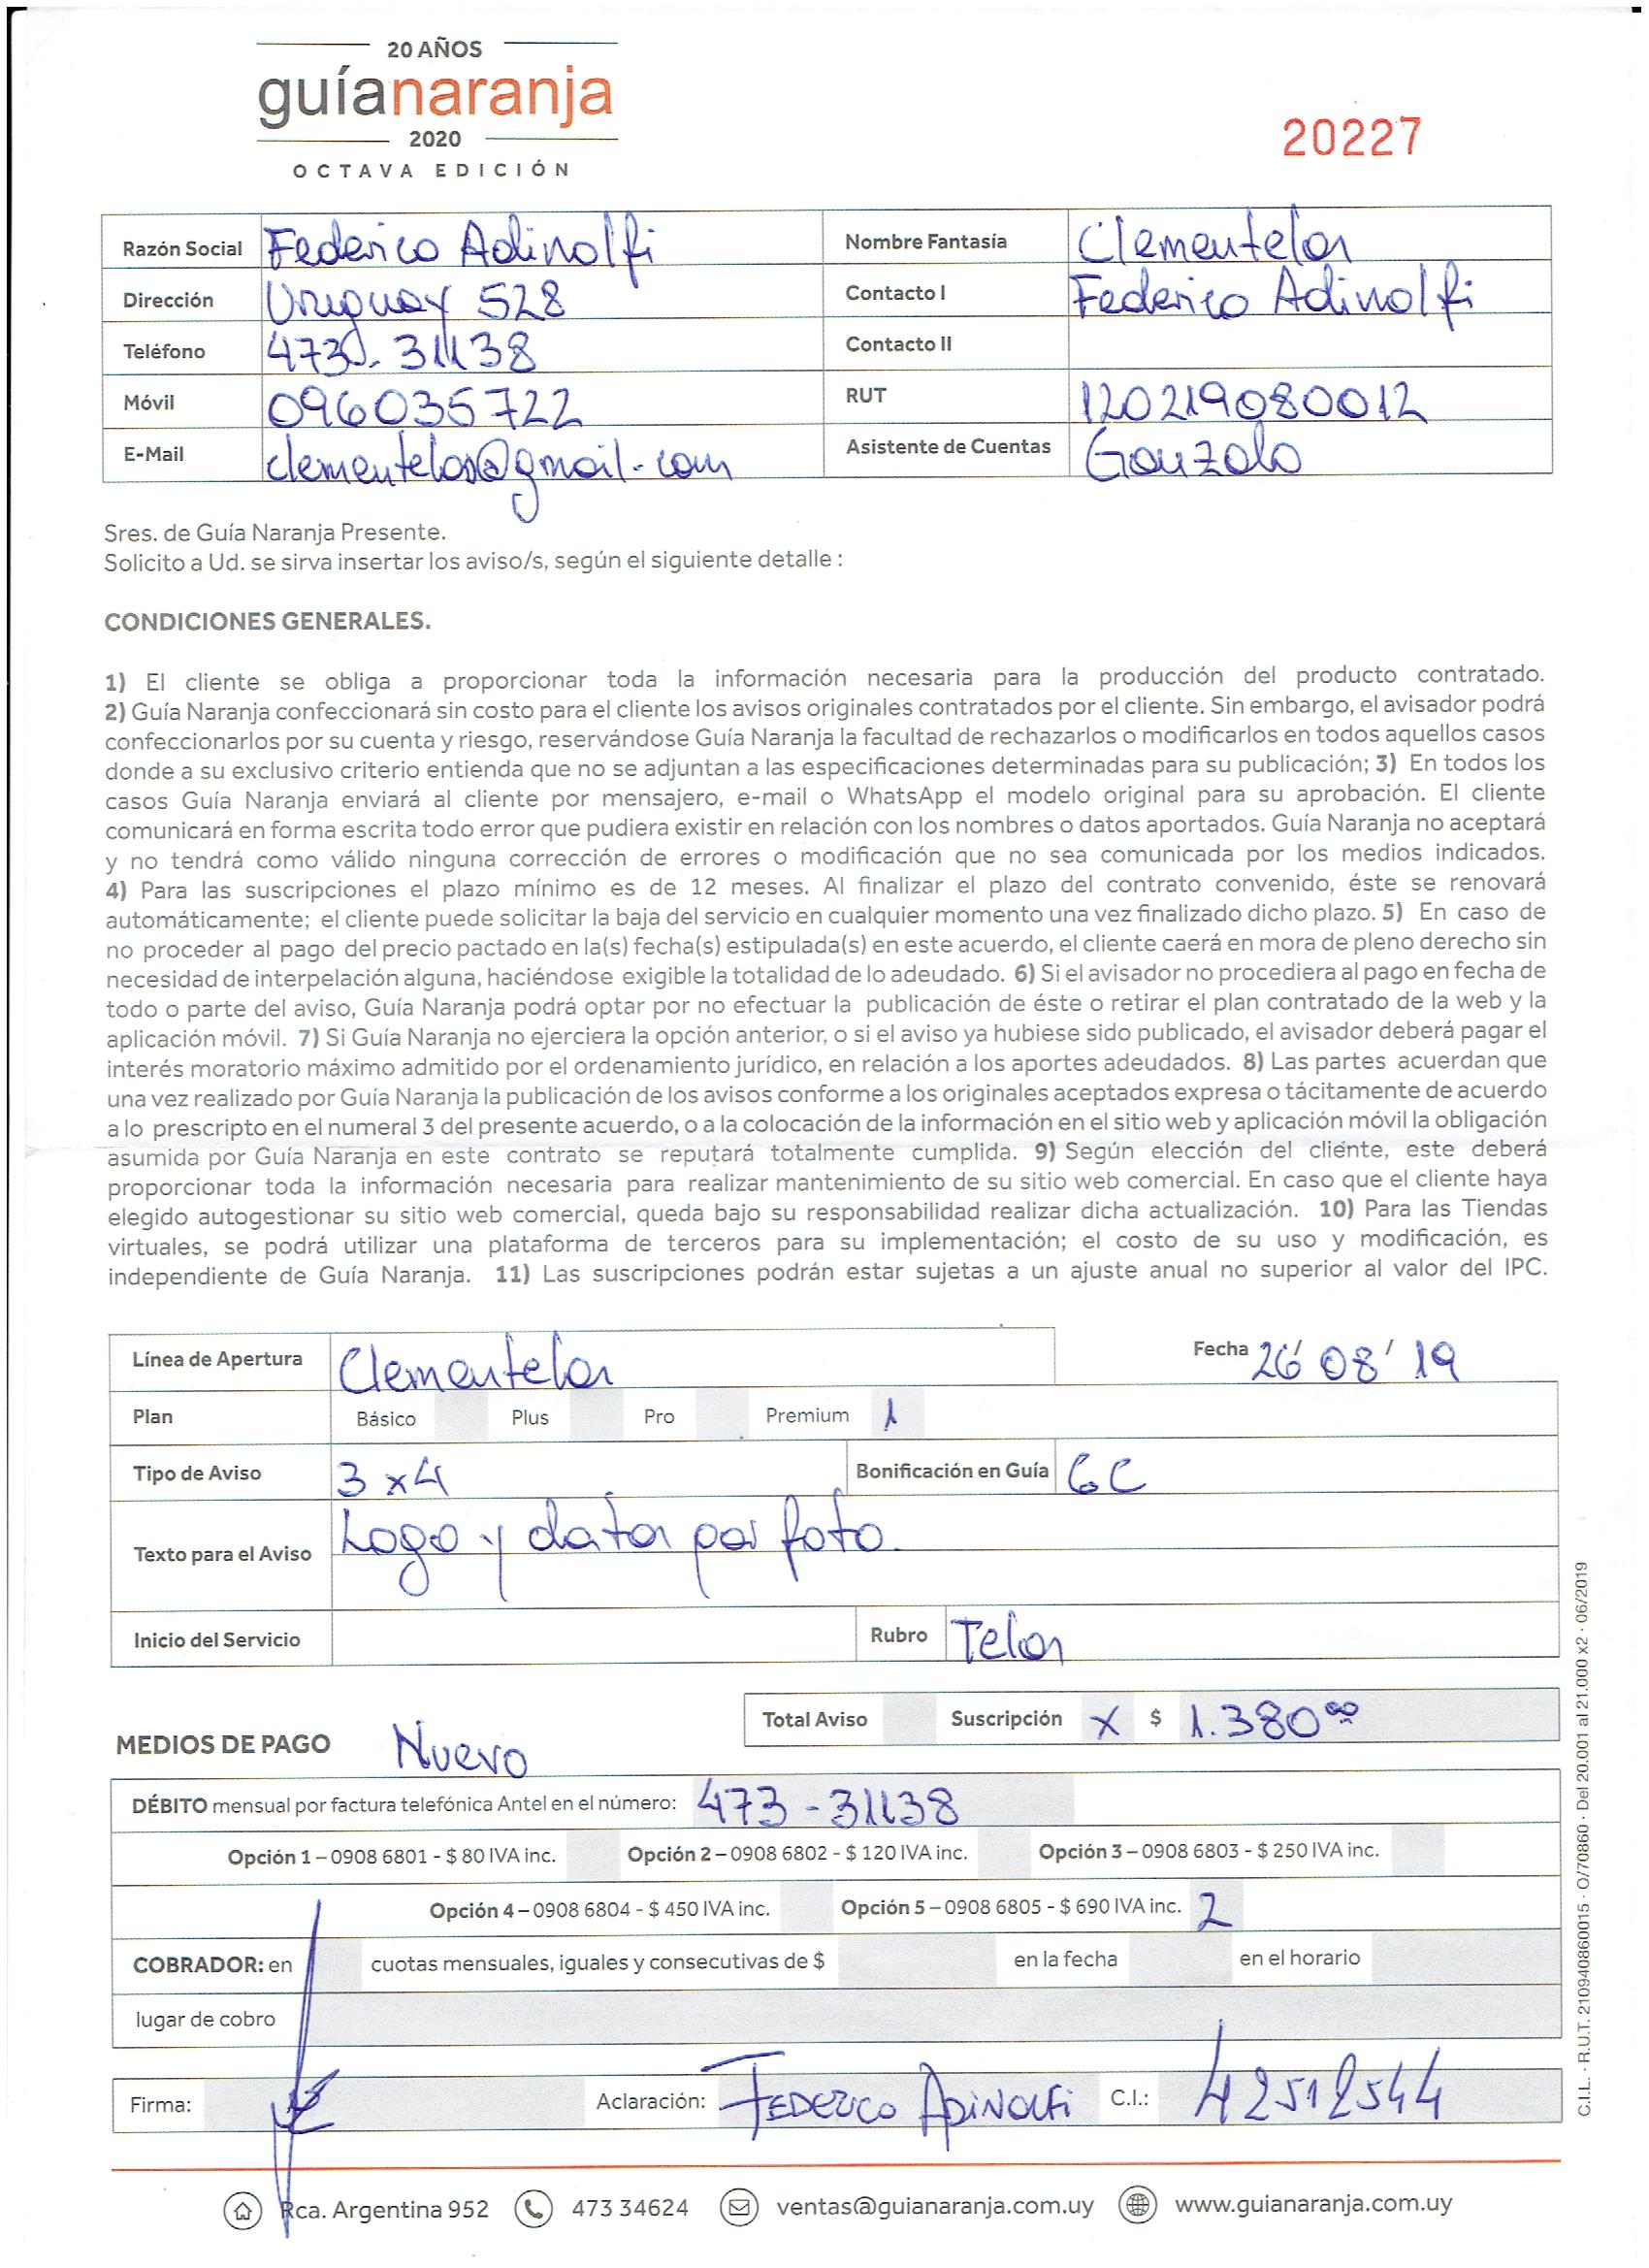 20 AÑOS
guíanaranja
2020
OCTAVA EDICIÓN
20227
Razón Social Federico Adinolfi Nombre Fantasía Clementelas
Dirección Uruguay 528 Contacto I Federico Adinolfi
Teléfono 473-31138 Contacto II
Móvil 096035722 RUT 120219080012
E-Mail clementelas@gmail.com Asistente de Cuentas Gonzalo
Sres. de Guía Naranja Presente.
Solicito a Ud. se sirva insertar los aviso/s, según el siguiente detalle :
CONDICIONES GENERALES.
1) El cliente se obliga a proporcionar toda la información necesaria para la producción del producto contratado.
2) Guía Naranja confeccionará sin costo para el cliente los avisos originales contratados por el cliente. Sin embargo, el avisador podrá
confeccionarlos por su cuenta y riesgo, reservándose Guía Naranja la facultad de rechazarlos o modificarlos en todos aquellos casos
donde a su exclusivo criterio entienda que no se adjuntan a las especificaciones determinadas para su publicación; 3) En todos los
casos Guía Naranja enviará al cliente por mensajero, e-mail o WhatsApp el modelo original para su aprobación. El cliente
comunicará en forma escrita todo error que pudiera existir en relación con los nombres o datos aportados. Guía Naranja no aceptará
y no tendrá como válido ninguna corrección de errores o modificación que no sea comunicada por los medios indicados.
4) Para las suscripciones el plazo mínimo es de 12 meses. Al finalizar el plazo del contrato convenido, éste se renovará
automáticamente; el cliente puede solicitar la baja del servicio en cualquier momento una vez finalizado dicho plazo. 5) En caso de
no proceder al pago del precio pactado en la(s) fecha(s) estipulada(s) en este acuerdo, el cliente caerá en mora de pleno derecho sin
necesidad de interpelación alguna, haciéndose exigible la totalidad de lo adeudado. 6) Si el avisador no procediera al pago en fecha de
todo o parte del aviso, Guía Naranja podrá optar por no efectuar la publicación de éste o retirar el plan contratado de la web y la
aplicación móvil. 7) Si Guía Naranja no ejerciera la opción anterior, o si el aviso ya hubiese sido publicado, el avisador deberá pagar el
interés moratorio máximo admitido por el ordenamiento jurídico, en relación a los aportes adeudados. 8) Las partes acuerdan que
una vez realizado por Guía Naranja la publicación de los avisos conforme a los originales aceptados expresa o tácitamente de acuerdo
a lo prescripto en el numeral 3 del presente acuerdo, o a la colocación de la información en el sitio web y aplicación móvil la obligación
asumida por Guía Naranja en este contrato se reputará totalmente cumplida. 9) Según elección del cliente, este deberá
proporcionar toda la información necesaria para realizar mantenimiento de su sitio web comercial. En caso que el cliente haya
elegido autogestionar su sitio web comercial, queda bajo su responsabilidad realizar dicha actualización. 10) Para las Tiendas
virtuales, se podrá utilizar una plataforma de terceros para su implementación; el costo de su uso y modificación, es
independiente de Guía Naranja. 11) Las suscripciones podrán estar sujetas a un ajuste anual no superior al valor del IPC.
Línea de Apertura Clementelas Fecha 26/08/19
Plan Básico Plus Pro Premium 1
Tipo de Aviso 3x4 Bonificación en Guía 6C
Texto para el Aviso Logo y datos por foto.
Inicio del Servicio Rubro Telas
Total Aviso Suscripción X $ 1.380 00
MEDIOS DE PAGO Nuevo
DÉBITO mensual por factura telefónica Antel en el número: 473-31138
Opción 1 – 0908 6801 - $ 80 IVA inc. Opción 2 – 0908 6802 - $ 120 IVA inc. Opción 3 – 0908 6803 - $ 250 IVA inc.
Opción 4 – 0908 6804 - $ 450 IVA inc. Opción 5 – 0908 6805 - $ 690 IVA inc. 2
COBRADOR: en cuotas mensuales, iguales y consecutivas de $ en la fecha en el horario
lugar de cobro
Firma: Aclaración: FEDERICO ADINOLFI C.I.: 42512544
Rca. Argentina 952 473 34624 ventas@guianaranja.com.uy www.guianaranja.com.uy
C.I.L. · R.U.T. 210940860015 · O/70860 · Del 20.001 al 21.000 x2 · 06/2019